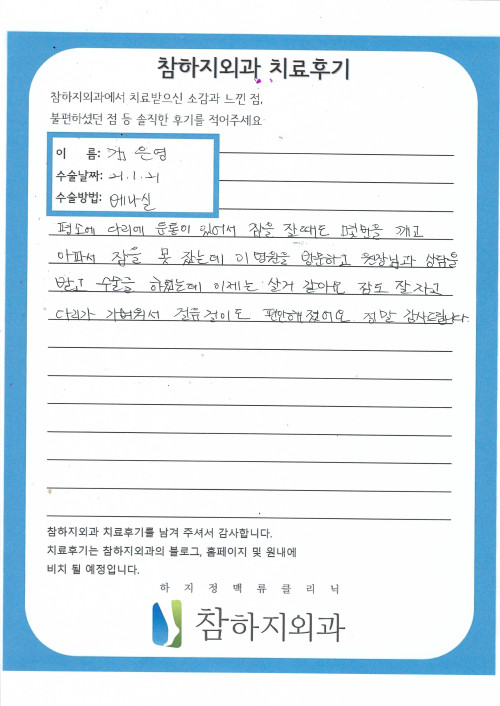 참하지외과 치료후기
참하지외과에서 치료받으신 소감과 느낀 점,
불편하셨던 점 등 솔직한 후기를 적어주세요
이 름: 김 은영
수술날짜: 21.1.21
수술방법: 베나실
평소에 다리에 통증이 있어서 잠을 잘때도 몇번을 깨고
아파서 잠을 못 잤는데 이 병원을 방문하고 원장님과 상담을
받고 수술을 하였는데 이제는 살거 같아요 잠도 잘 자고
다리가 가벼워서 걸음걸이도 편안해졌어요 정말 감사드립니다.
참하지외과 치료후기를 남겨 주셔서 감사합니다.
치료후기는 참하지외과의 블로그, 홈페이지 및 원내에
비치 될 예정입니다.
하지정맥류클리닉
참하지외과